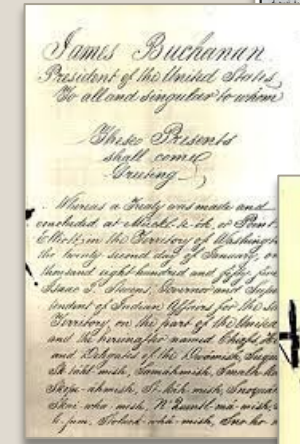 James Buchanan
President of the United States,
To all and singular to whom
These Presents
shall come
Greeting:
Whereas a Treaty was made and
concluded at Muckl-te-oh, or Point
Elliott, in the Territory of Washington
the twenty second day of January, one
thousand eight hundred and fifty five
Isaac I. Stevens, Governor and Super
intendent of Indian Affairs for the said
Territory, on the part of the United
and the hereinafter named Chiefs
and Delegates of the Dwamish, Suquamish
Sk-tahl-mish, Samahmish, Smalh-kamish
Skope-ahmish, St-kah-mish, Snoqualmoo
Skai-wha-mish, N'Quentl-ma-mish